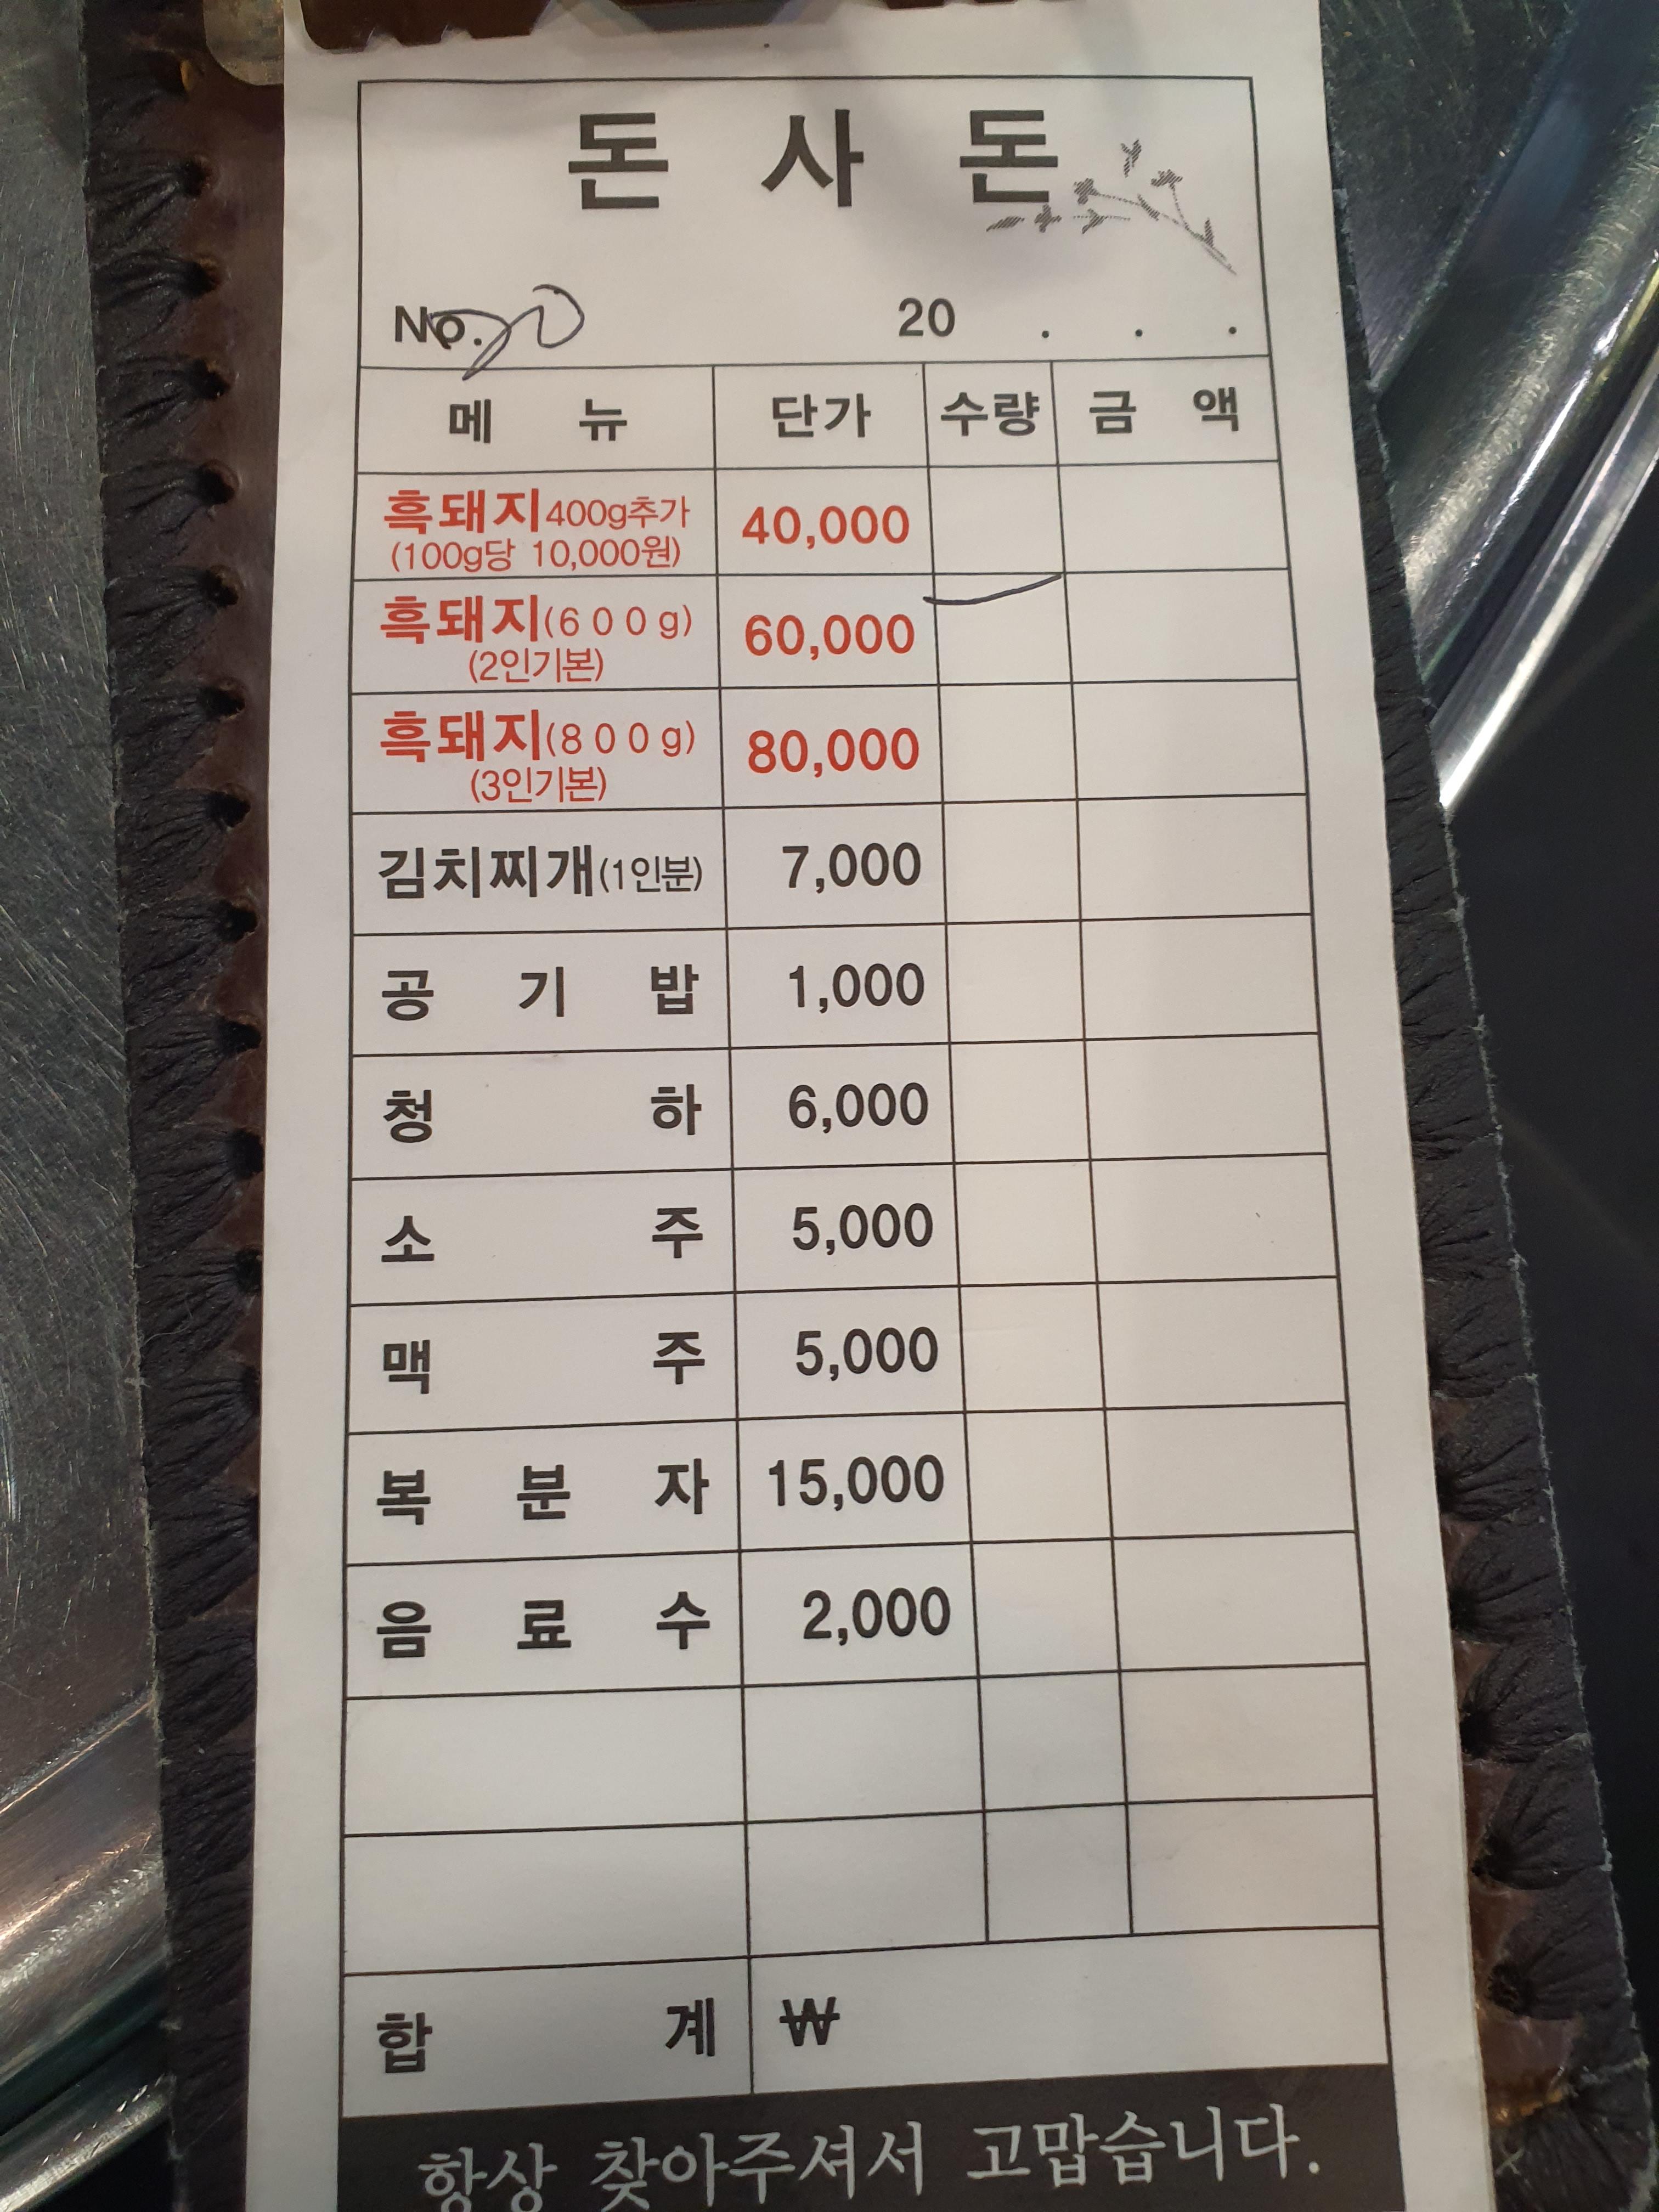 돈 사 돈
No. 20 20 . . .
메 뉴 단가 수량 금 액
흑돼지400g추가 40,000
(100g당 10,000원)
흑돼지(600g) 60,000
(2인기본)
흑돼지(800g) 80,000
(3인기본)
김치찌개(1인분) 7,000
공 기 밥 1,000
청 하 6,000
소 주 5,000
맥 주 5,000
복 분 자 15,000
음 료 수 2,000
합 계 ₩
항상 찾아주셔서 고맙습니다.